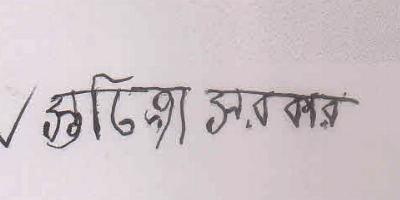 সুচিত্রা সরকার